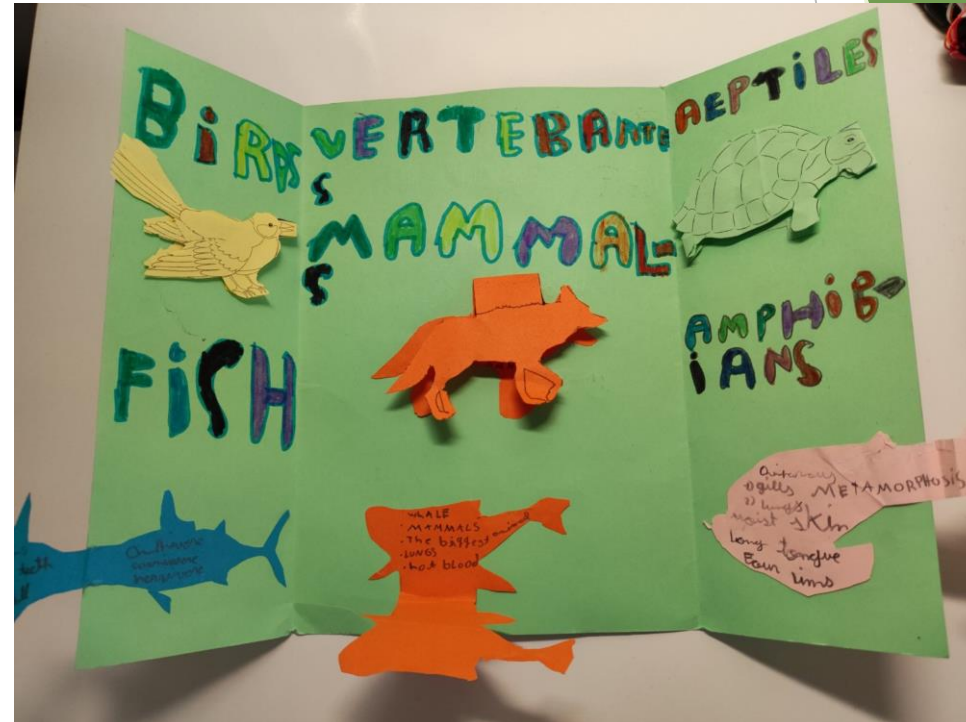 BiRDS
FiSH
teeth
carnivore
VERTEBRANTE
S
MAMMAL-
S
WHALE
• MAMMALS
• The biggest animal
• LUNGS
• hot blood
REPTiLES
AMPHiB-
iANS
1) gills METAMORPHOSIS
2) lungs
moist skin
long tongue
Four lims